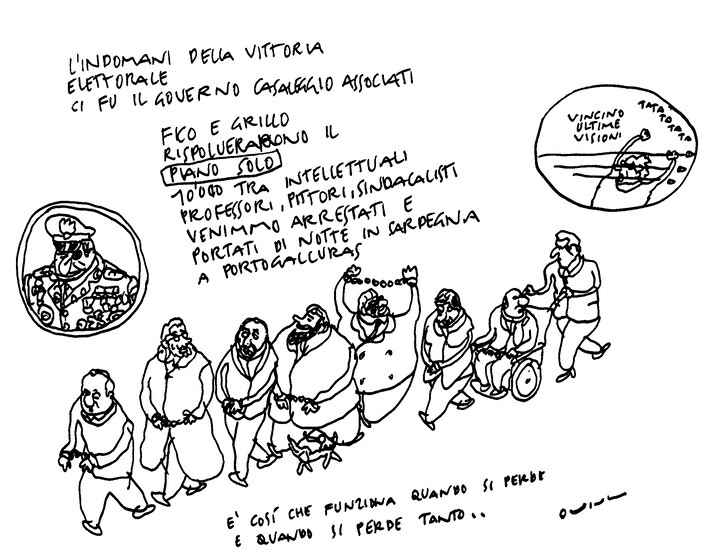 L'INDOMANI DELLA VITTORIA
ELETTORALE
CI FU IL GOVERNO CASALEGGIO ASSOCIATI
FICO E GRILLO
RISPOLVERARONO IL
PIANO SOLO
10'000 TRA INTELLETTUALI
PROFESSORI, PITTORI, SINDACALISTI
VENIMMO ARRESTATI E
PORTATI DI NOTTE IN SARDEGNA
A PORTOGALLURAS
VINCINO
ULTIME
VISIONI
TATA
TO
TA
TA
E' COSÍ CHE FUNZIONA QUANDO SI PERDE
E QUANDO SI PERDE TANTO..